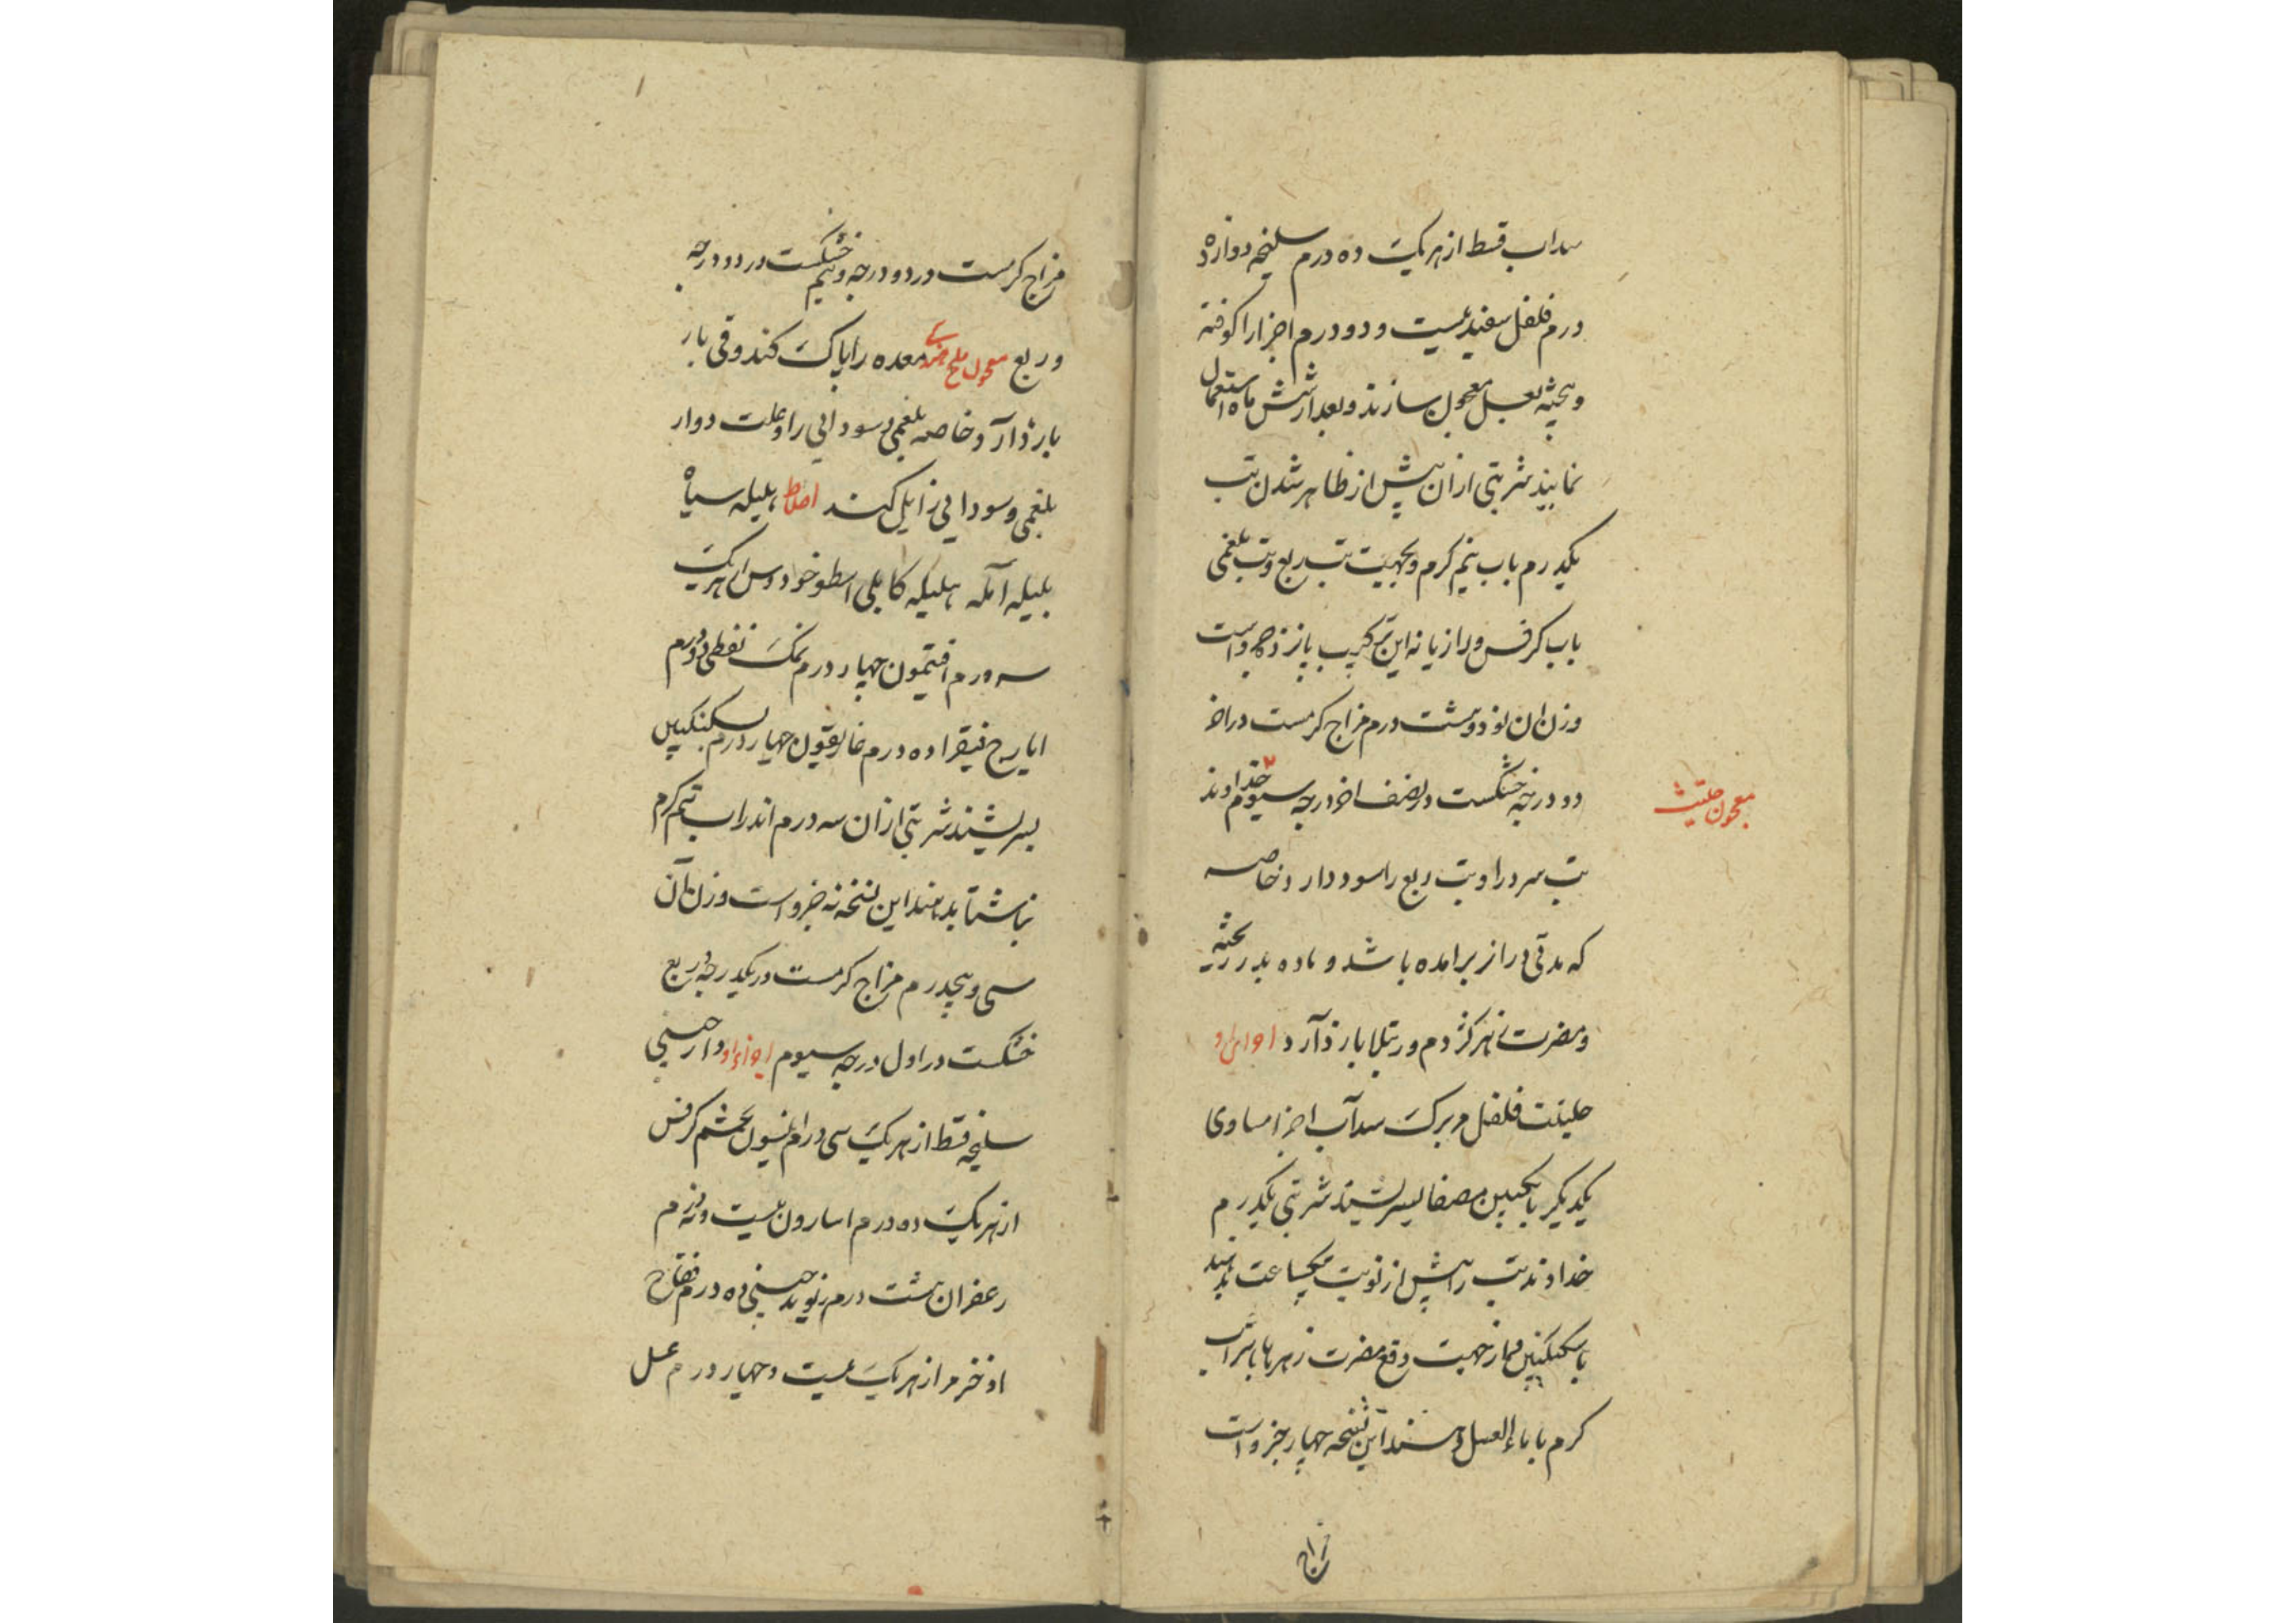 سداب قسط از هر یک ده درم سلیخه دوازده
درم فلفل سفید بیست و دو درم اجزا را کوفته
و بیخته بعسل معجون سازند و بعد از شش ماه استعمال
نمایند شربتی از ان پیش از ظاهر شدن تب
یکدرم باب نیم کرم و بجهت تب ربع و تب بلغمی
باب کرفس و رازیانه این ترکیب پانزده جزو است
وزن ان نود و هشت درم مزاج کرمست در اخر
دو درجه خشکست در نصف اخر درجه سیوم خداوند
معجون حلتیث
تب سرد را و تب ربع را سود دارد خاصه
که مدتی دراز برامده باشد و ماده بدر
و مضرت زهر کژدم و رتیلا باز دآرد
حلیتت فلفل مر برک سدآب اجزا مساوی
یکدیکر با انکبین مصفا بسرشیند شربتی یکدرم
خداوند تب را پیش از نوبت بیکساعت بدهند
با سکنکبین و از جهت دفع مضرت زهرها با شراب
کرم یا با ماء العسل دهند این نسخه چهار جزو است
مزاج
مزاج کرمست در دو درجه و نیم خشکست در دو درجه
و ربع معجون ملح هندی معده را پاک کند و قی باز
باز دآرد خاصه بلغمی و سودایی را و علت دوار
بلغمی و سودایی زایل کند اخلاط هلیله سیاه
بلیله آمله هلیله کابلی اسطوخودوس از هر یک
سه درم افتیمون چهار درم نمک نفطی دو درم
ایارج فیقرا ده درم غاریقون چهار درم بسکنکبین
بسرشند شربتی ازان سه درم اندر اب نیم کرم
بناشتا بدهند این نسخه نه جزو است وزن آن
سی و پنجدرم مزاج کرمست در یکدرجه و ربع
خشکست در اول درجه سیوم دارچینی
سلیخه قسط از هر یک سی درم انیسون تخم کرفس
از هر یک ده درم اسارون بیست و نه درم
زعفران هشت درم ریوند چینی ده درم فقاح
اذخر مر از هر یک بیست و چهار درم عسل